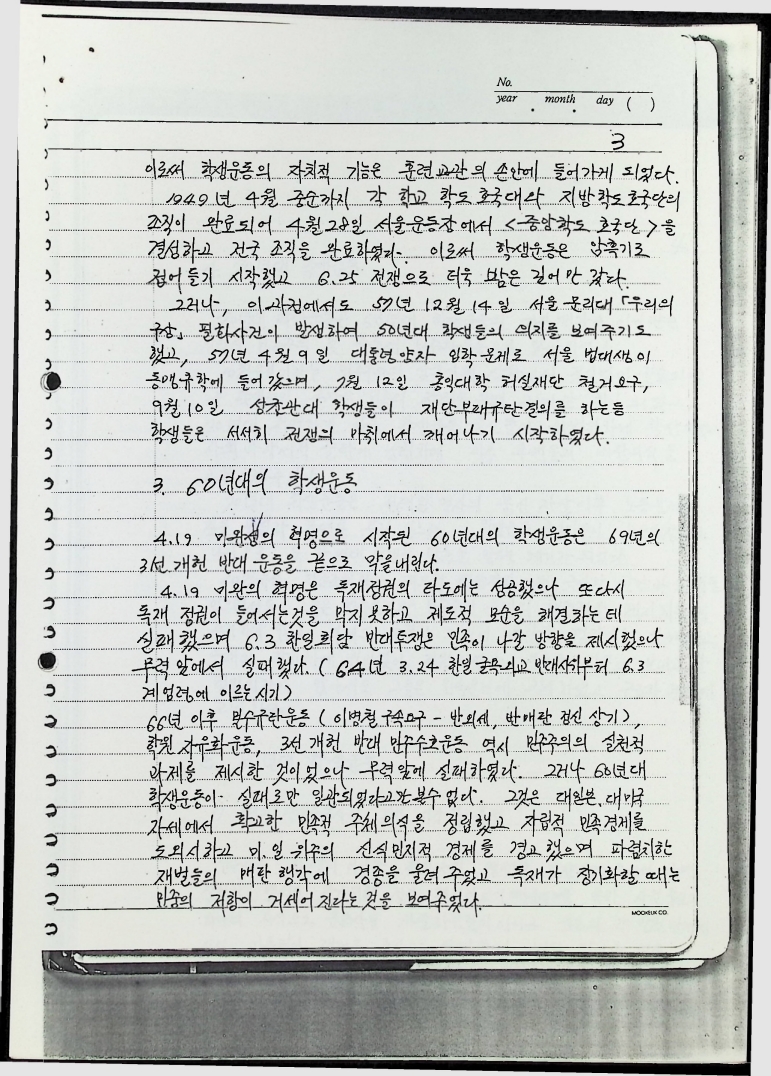 No.
year . month . day ( )
3
이로써 학생운동의 자치적 기능은 훈련교관의 손안에 들어가게 되었다.
1949년 4월 중순까지 각 학교 학도호국대와 지방학도호국단의
조직이 완료되어 4월 28일 서울운동장에서 <중앙학도 호국단>을
결성하고 전국 조직을 완료하였다. 이로써 학생운동은 암흑기로
접어들기 시작했고 6.25 전쟁으로 더욱 밤은 길어만 갔다.
그러나, 이과정에서도 57년 12월 14일 서울 문리대 「우리의
구상」 필화사건이 발생하여 50년대 학생들의 의지를 보여주기도
했고, 57년 4월 9일 대통령양자 입학문제로 서울 법대생이
동맹휴학에 들어갔으며, 7월 12일 홍익대학 허실재단 철거요구,
9월 10일 성균관대 학생들이 재단부패규탄결의를 하는등
학생들은 서서히 전쟁의 마취에서 깨어나기 시작하였다.
3. 60년대의 학생운동
4.19 미완의 혁명으로 시작된 60년대의 학생운동은 69년의
3선개헌 반대 운동을 끝으로 막을내린다.
4.19 미완의 혁명은 독재정권의 타도에는 성공했으나 또다시
독재 정권이 들어서는것을 막지못하고 제도적 모순을 해결하는데
실패했으며 6.3 한일회담 반대투쟁은 민족이 나갈 방향을 제시했으나
무력앞에서 실패했다. (64년 3.24 한일굴욕외교 반대시위부터 6.3
계엄령에 이르는시기)
66년 이후 밀수규탄운동 (이병철구속요구 - 반외세, 반매판 정신 상기),
학원 자유화운동, 3선개헌 반대 민주수호운동 역시 민주주의의 실천적
과제를 제시한 것이었으나 무력앞에 실패하였다. 그러나 60년대
학생운동이 실패로만 일관되었다고만볼수 없다. 그것은 대일본, 대미국
자세에서 확고한 민족적 주체의식을 정립했고 자립적 민족경제를
도외시하고 미.일 위주의 신식민지적 경제를 경고했으며 파렴치한
재벌들의 매판행각에 경종을 울려주었고 독재가 장기화할 때는
민중의 저항이 거세어진다는것을 보여주었다.
MOOKEUK CO.